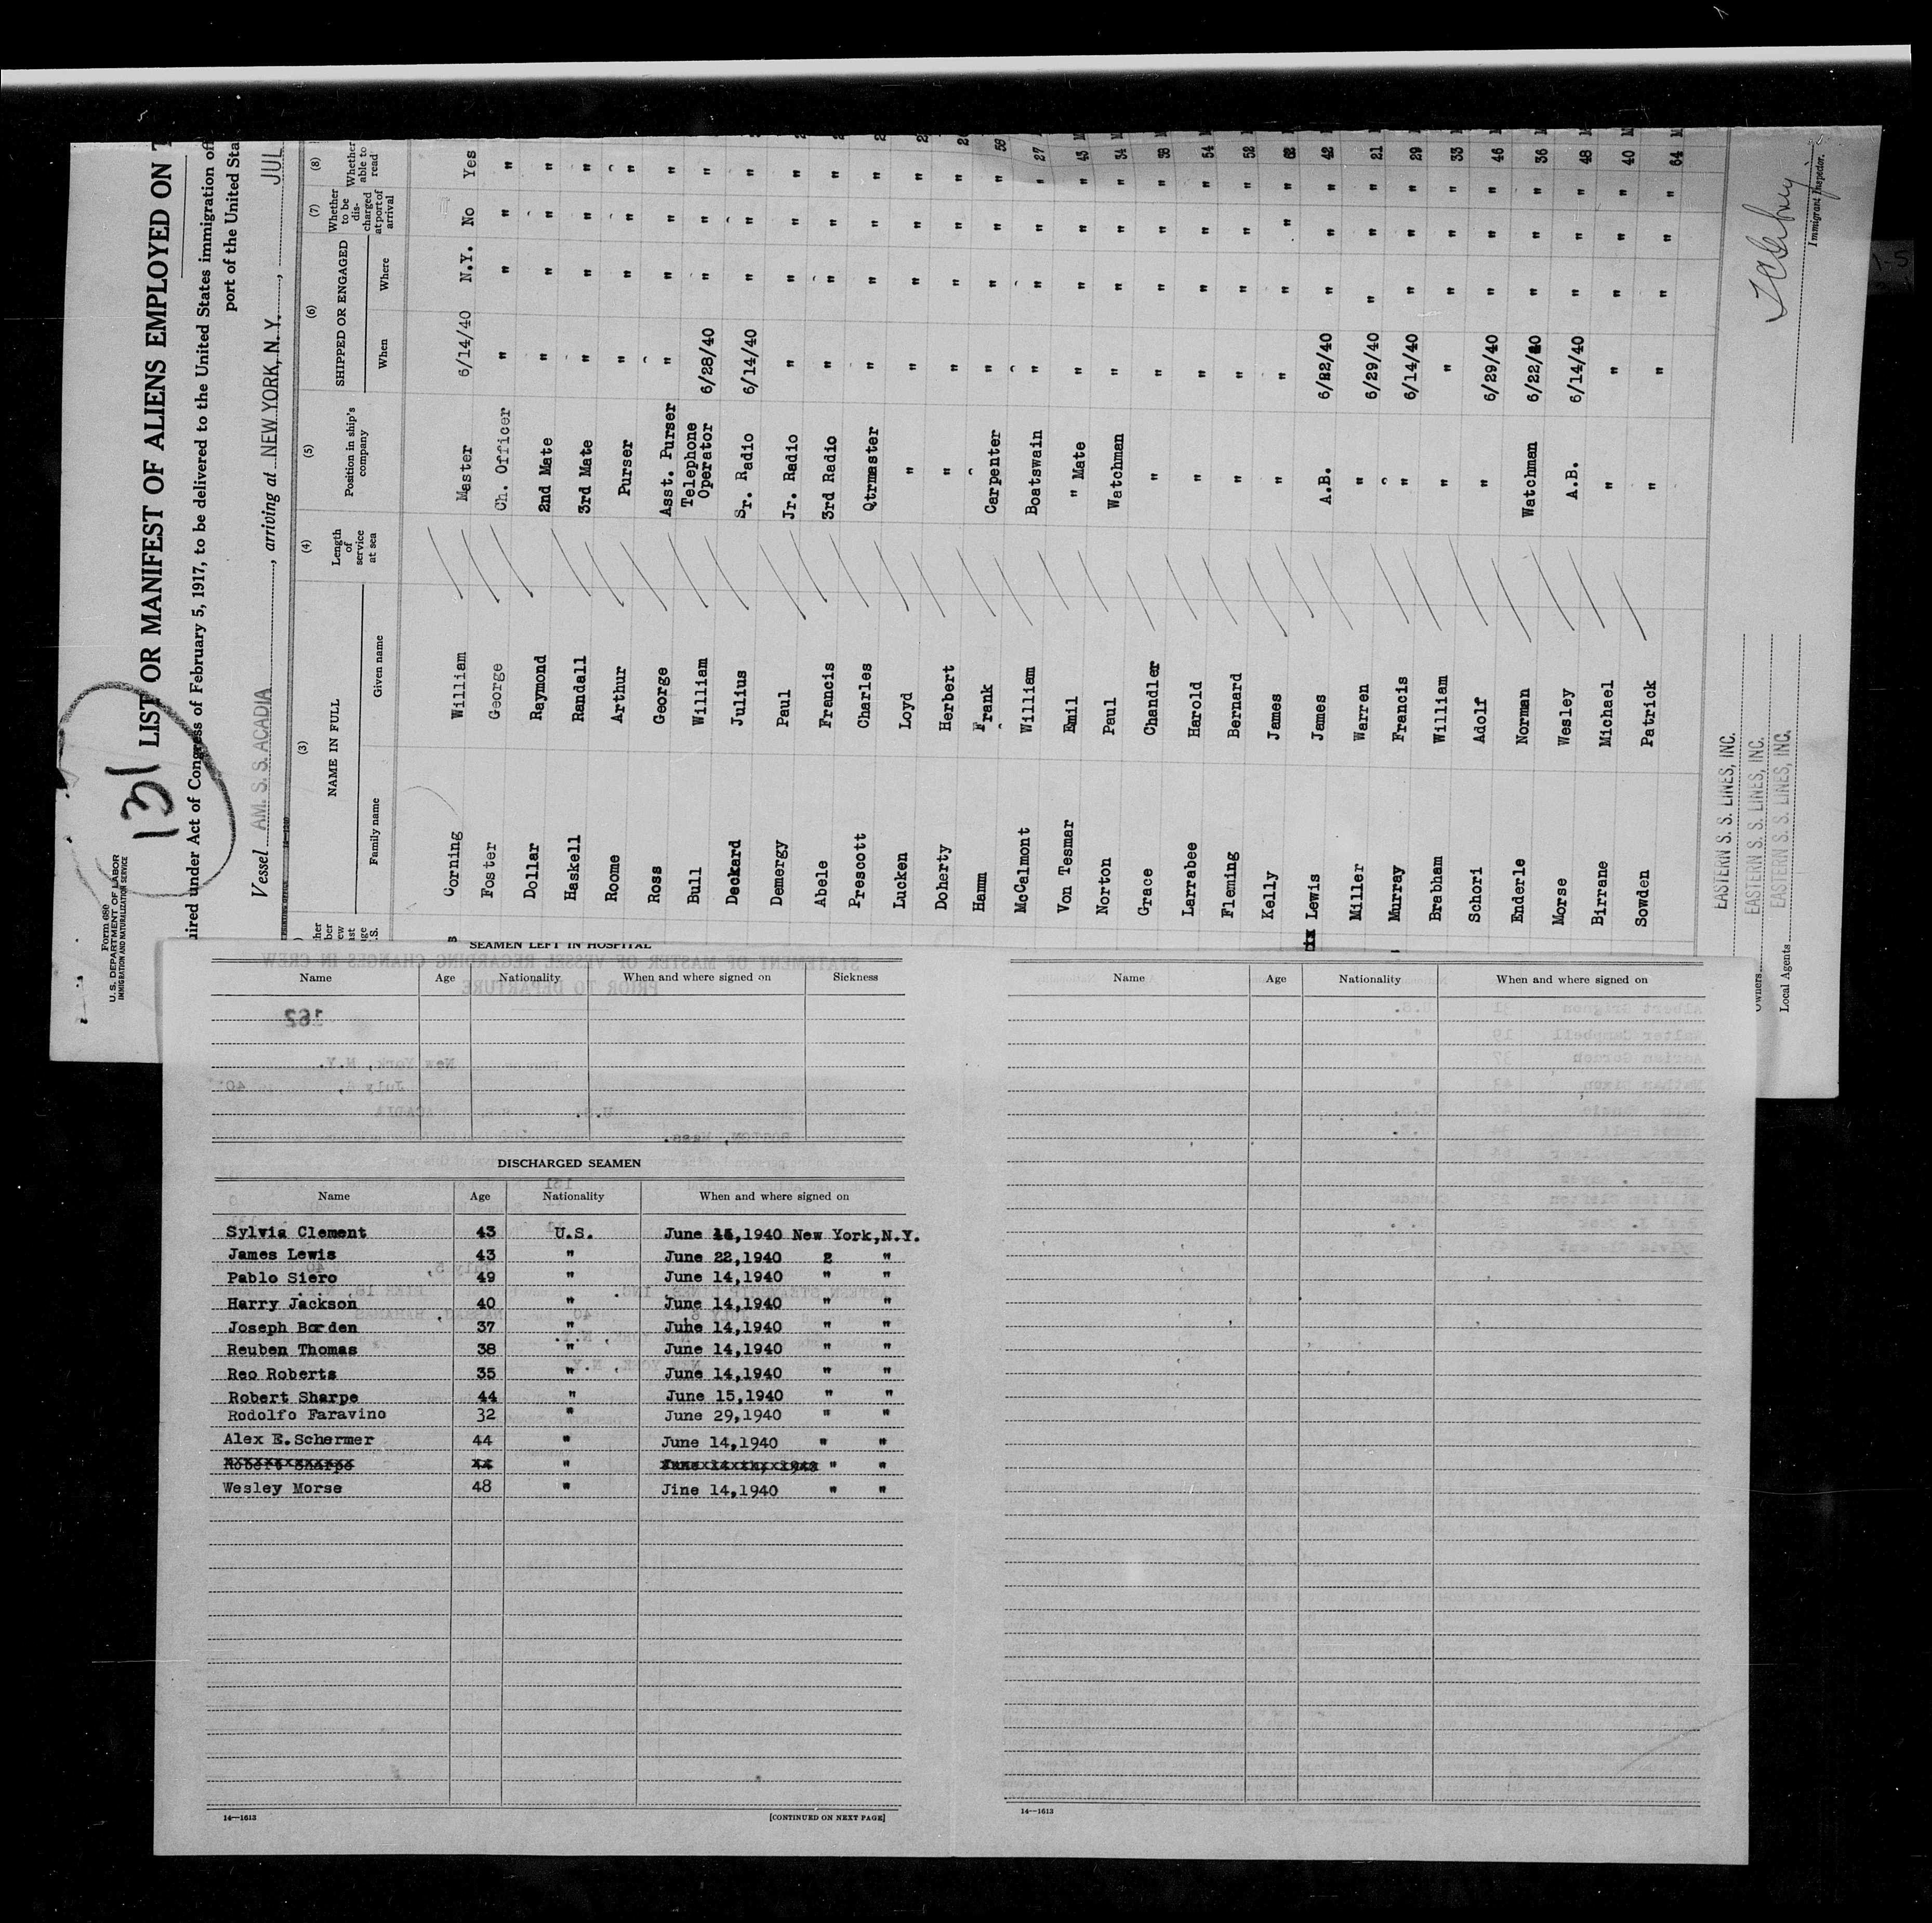 131
Form 680
U. S. DEPARTMENT OF LABOR
IMMIGRATION AND NATURALIZATION SERVICE
LIST OR MANIFEST OF ALIENS EMPLOYED ON
uired under Act of Congress of February 5, 1917, to be delivered to the United States immigration of
port of the United Sta
Vessel AM. S. S. ACADIA, arriving at NEW YORK, N. Y., JUL
(3) (4) (5) (6) (7) (8)
NAME IN FULL Length of service at sea Position in ship's company SHIPPED OR ENGAGED Whether to be discharged at port of arrival Whether able to read
Family name Given name When Where
Corning William Master 6/14/40 N.Y. No Yes
Foster George Ch. Officer " " " "
Dollar Raymond 2nd Mate " " " "
Haskell Randall 3rd Mate " " " "
Roome Arthur Purser " " " "
Ross George Asst. Purser " " " "
Bull William Telephone Operator 6/28/40 " " "
Deckard Julius Sr. Radio 6/14/40 " " "
Demergy Paul Jr. Radio " " " "
Abele Francis 3rd Radio " " " "
Prescott Charles Qtrmaster " " " "
Lucken Loyd " " " " "
Doherty Herbert " " " " "
Hamm Frank Carpenter " " " " 56
McCalmont William Boatswain " " " " 27
Von Tesmar Emil " Mate " " " " 43
Norton Paul Watchman " " " " 34
Grace Chandler " " " " " 38
Larrabee Harold " " " " " 54
Fleming Bernard " " " " " 52
Kelly James " " " " " 62
Lewis James A.B. 6/22/40 " " " 42
Miller Warren " 6/29/40 " " " 21
Murray Francis " 6/14/40 " " " 29
Brabham William " " " " " 33
Schori Adolf " 6/29/40 " " " 46
Enderle Norman Watchman 6/22/40 " " " 36
Morse Wesley A.B. 6/14/40 " " " 48
Birrane Michael " " " " " 40
Sowden Patrick " " " " " 64
EASTERN S. S. LINES, INC.
Owners EASTERN S. S. LINES, INC.
Local Agents EASTERN S. S. LINES, INC.
Immigrant Inspector.
SEAMEN LEFT IN HOSPITAL
Name Age Nationality When and where signed on Sickness
DISCHARGED SEAMEN
Name Age Nationality When and where signed on
Sylvia Clement 43 U.S. June 15,1940 New York,N.Y.
James Lewis 43 " June 22,1940 " "
Pablo Siero 49 " June 14,1940 " "
Harry Jackson 40 " June 14,1940 " "
Joseph Borden 37 " June 14,1940 " "
Reuben Thomas 38 " June 14,1940 " "
Reo Roberts 35 " June 14,1940 " "
Robert Sharpe 44 " June 15,1940 " "
Rodolfo Faravino 32 " June 29,1940 " "
Alex E.Schermer 44 " June 14,1940 " "
Robert Sharpe 44 " " "
Wesley Morse 48 " Jine 14,1940 " "
14—1613
[CONTINUED ON NEXT PAGE]
Name Age Nationality When and where signed on
14—1613